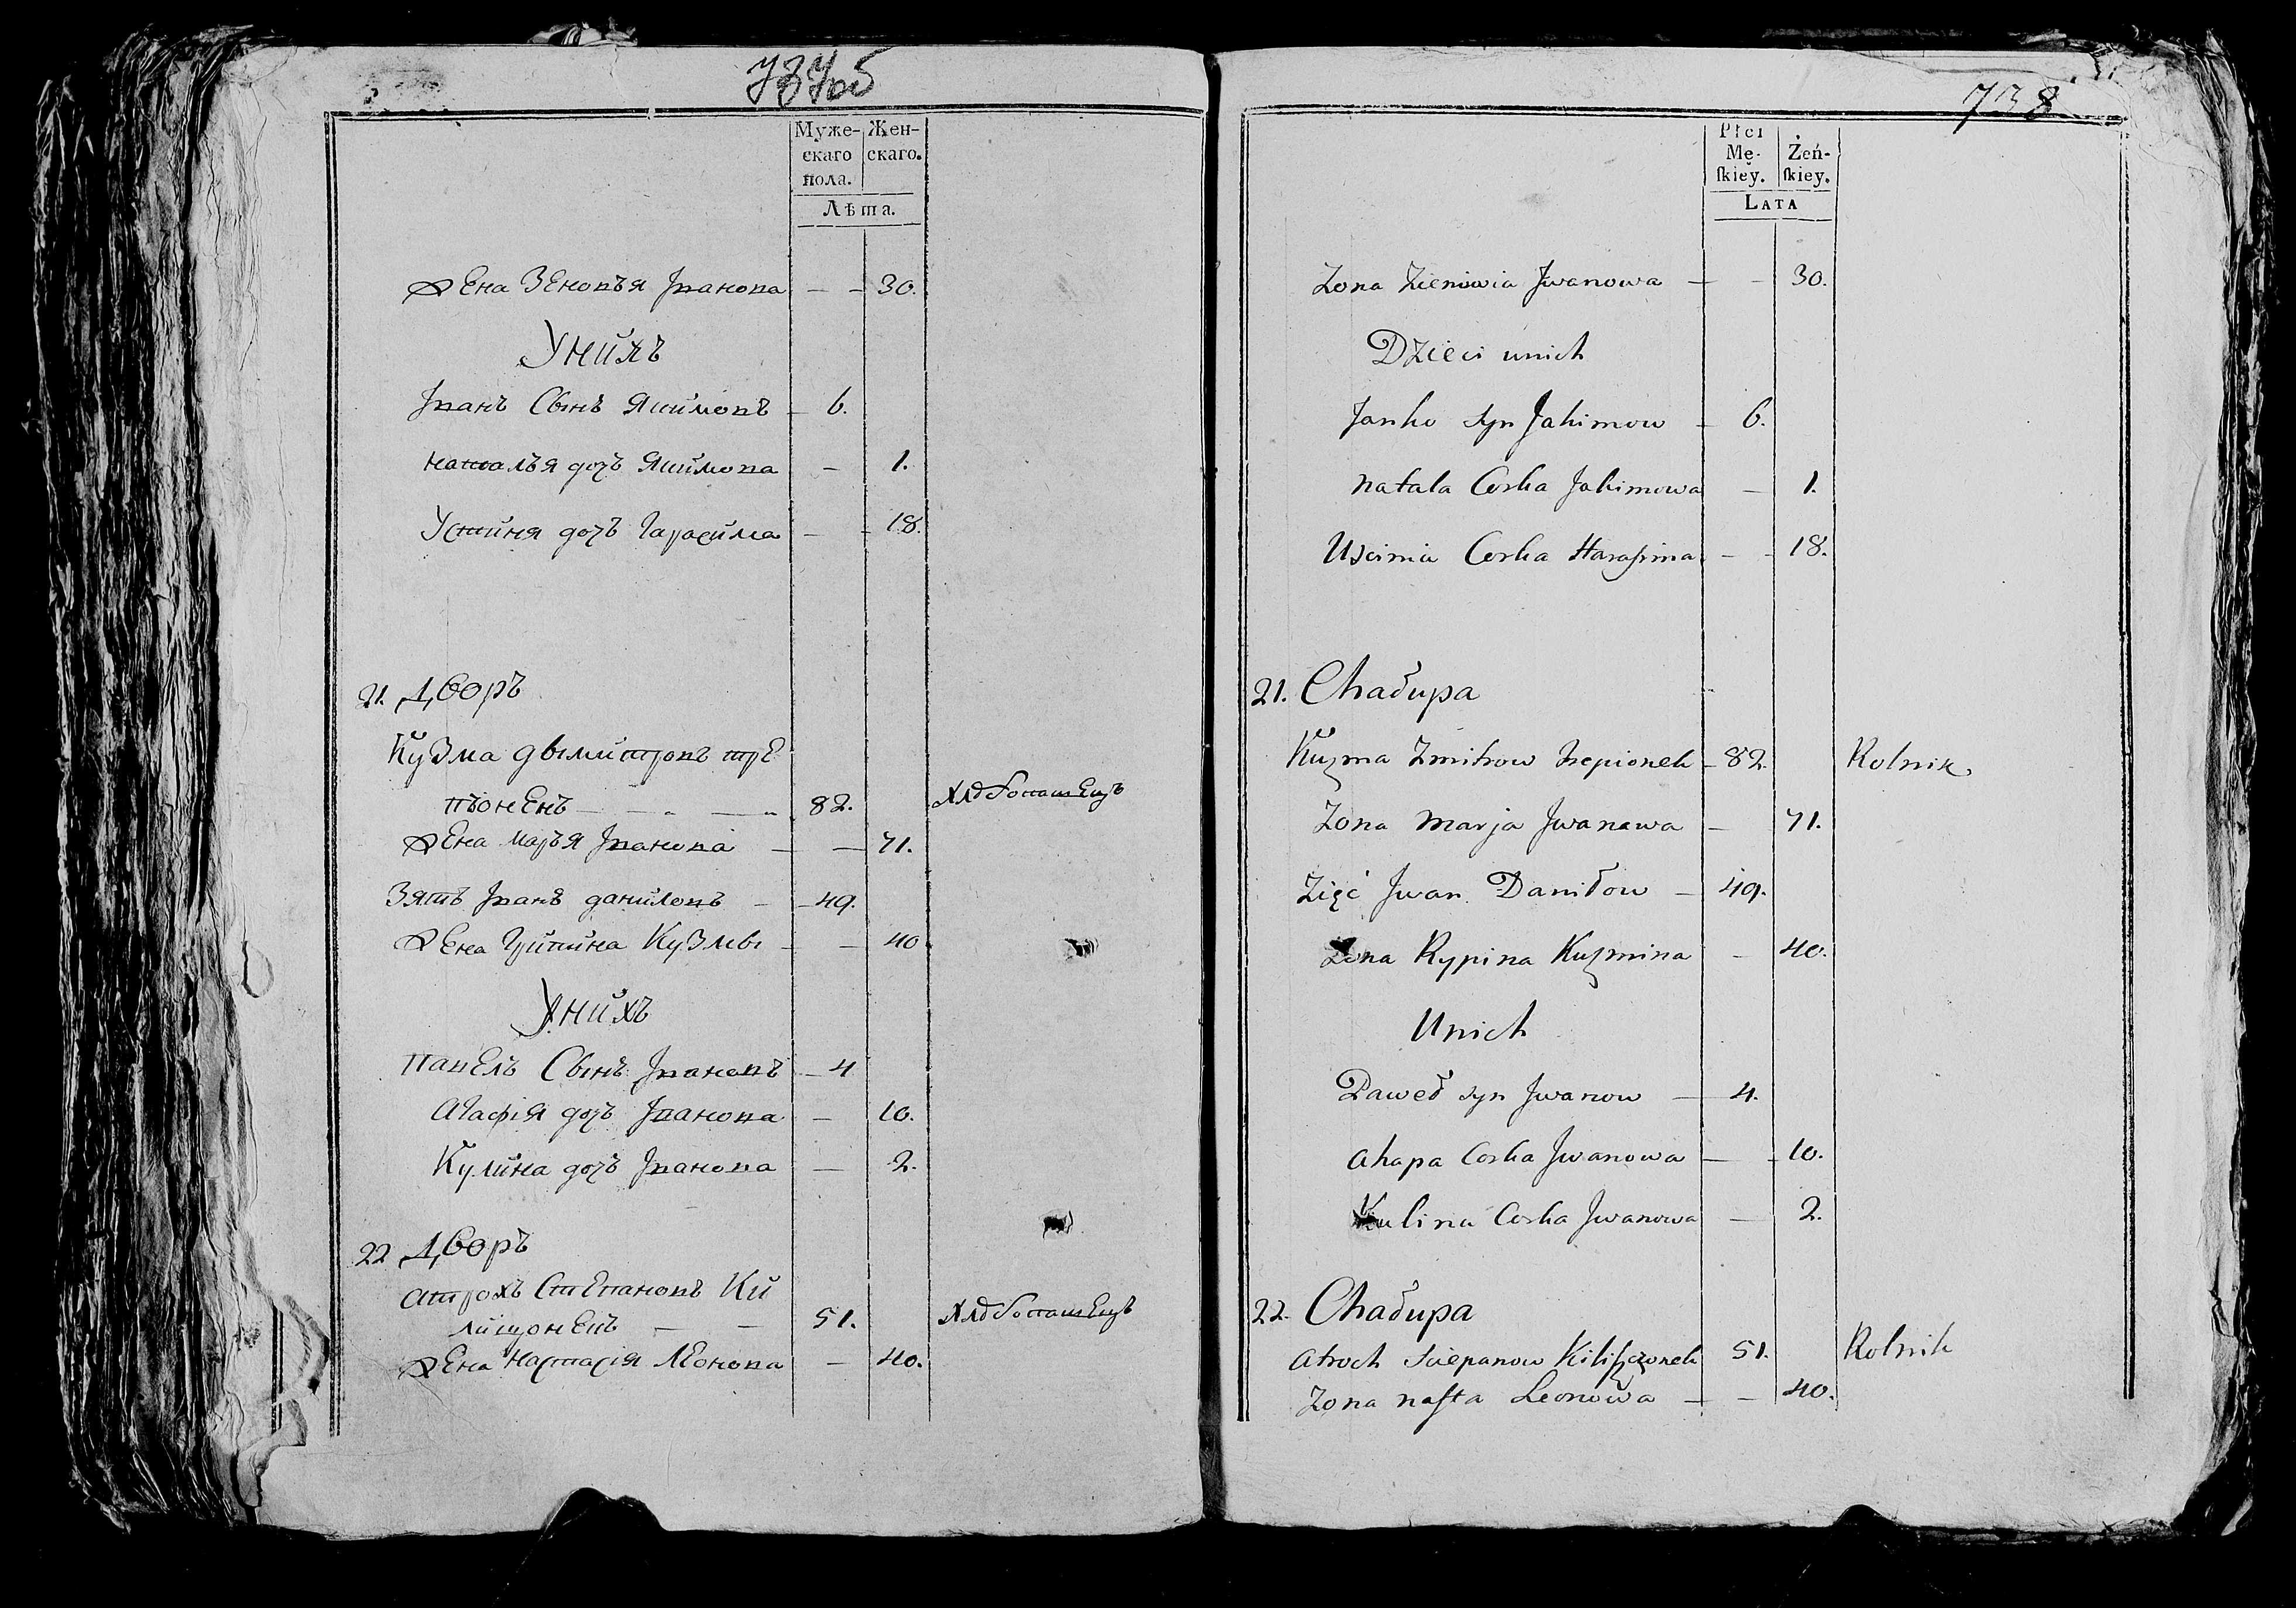 737об
Муже-
скаго
пола.
Жен-
скаго.
Лѣта.
Жена Зеновья Иванова — — 30.
У нихъ
Иванъ Сынъ Якимовъ — 6.
Наталья дочь Якимова — 1.
Устиня дочь Гарасима — — 18.
21. Дворъ
Кузма дымитровъ тре
піонекъ — — — 82. Хлѣбопашецъ
Жена Марья Иванова — — 71.
Зять Иванъ даниловъ — 49.
Жена Грипина Кузмы — — 40
У нихъ
Павелъ Сынъ Ивановъ — 4
Агафія дочь Иванова — 10.
Кулина дочь Иванова — 2.
22 Дворъ
Атрохъ Степановъ Ки
лищонекъ — — 51. Хлѣбопашецъ
Жена Настасія Леонова — 40.
738
Płci
Mę-
skiey.
Żeń-
skiey.
LATA
Zona Zienowia Jwanowa — — 30.
Dzieci unich
Janko syn Jakimow — 6.
Natala Corka Jakimowa — 1.
Uscinia Corka Harasima — — 18.
21. Chałupa
Kuzma Zmitrow Trepionek — 82. Rolnik
Zona Marja Jwanowa — 71.
Zięć Jwan Daniłow — 49.
Zona Rypina Kuzmina — 40.
Unich
Paweł syn Jwanow — 4.
Ahapa Corka Jwanowa — — 10.
Kulina Corka Jwanowa — 2.
22. Chałupa
Atroch Sciepanow Kiliszczonek 51. Rolnik
Zona nasta Leonowa — — 40.